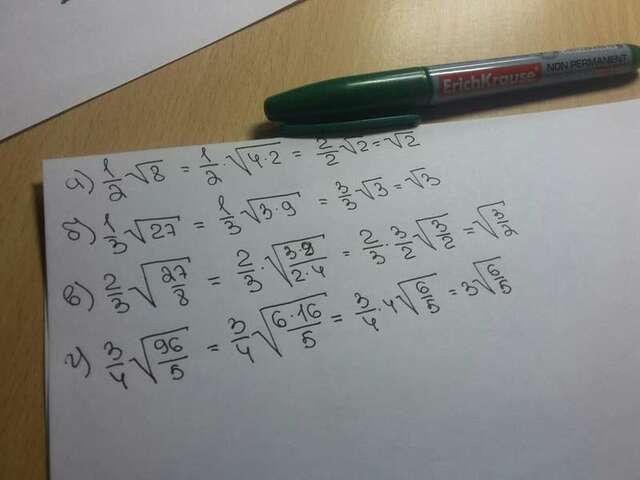 ErichKrause®
NON PERMANENT
а) 1/2 √8 = 1/2 · √(4·2) = 2/2 √2 = √2
б) 1/3 √27 = 1/3 √(3·9) = 3/3 √3 = √3
в) 2/3 √(27/8) = 2/3 · √(3·9/2·4) = 2/3 · 3/2 √(3/2) = √(3/2)
г) 3/4 √(96/5) = 3/4 √(6·16/5) = 3/4 · 4 √(6/5) = 3 √(6/5)